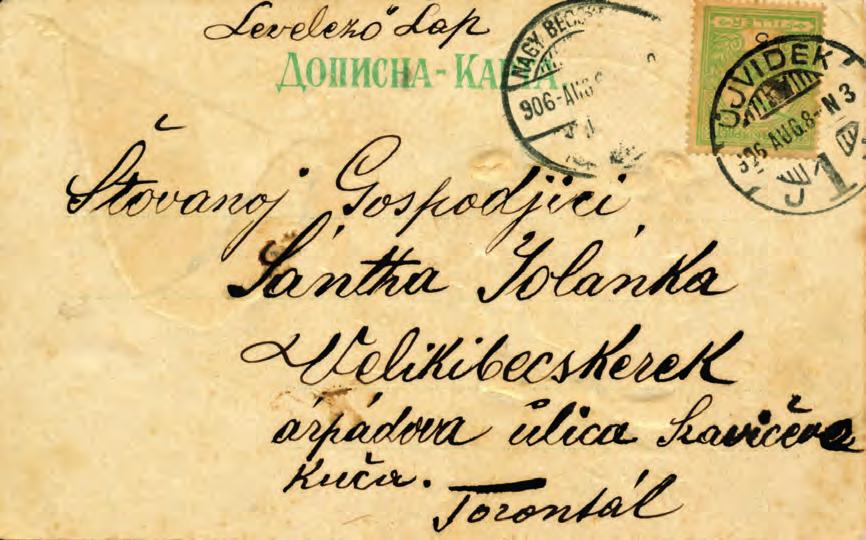 Levelező Lap
Дописна-Карта.
NAGY BECS
906-AUG
FILLER
ÚJVIDÉK
906 AUG.8-N3
J 1
Štovanoj Gospodjici
Sántha Jolánka
Velikibecskerek
árpádova ulica
kuča.
Torontál